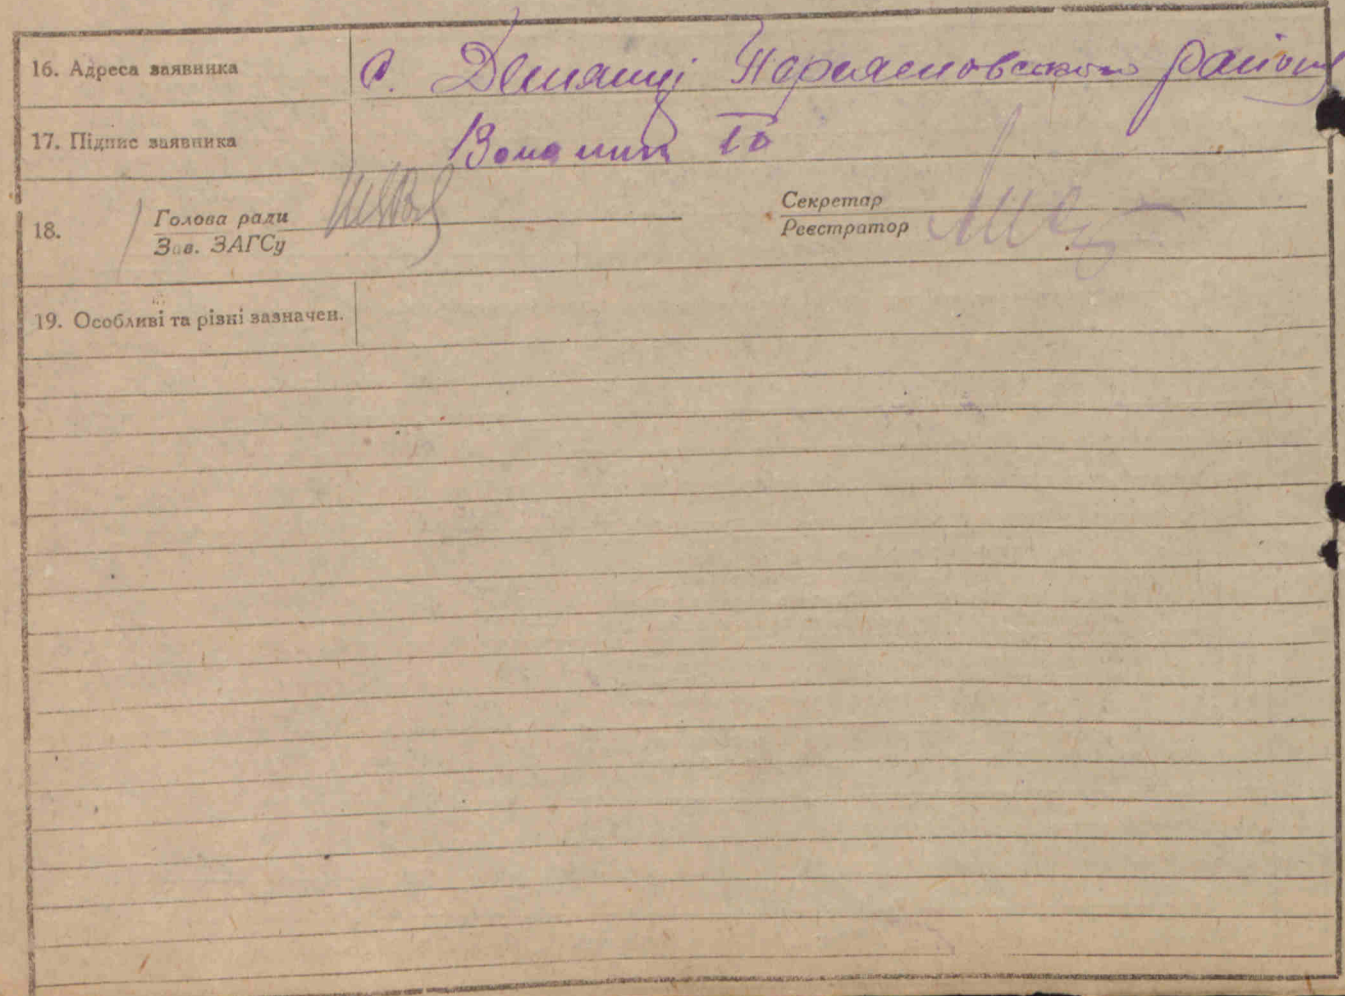 16. Адреса заявника с. Демянці Переясловского району
17. Підпис заявника
18. Голова ради Секретар
Зав. ЗАГСу Реєстратор
19. Особливі та різні зазначен.